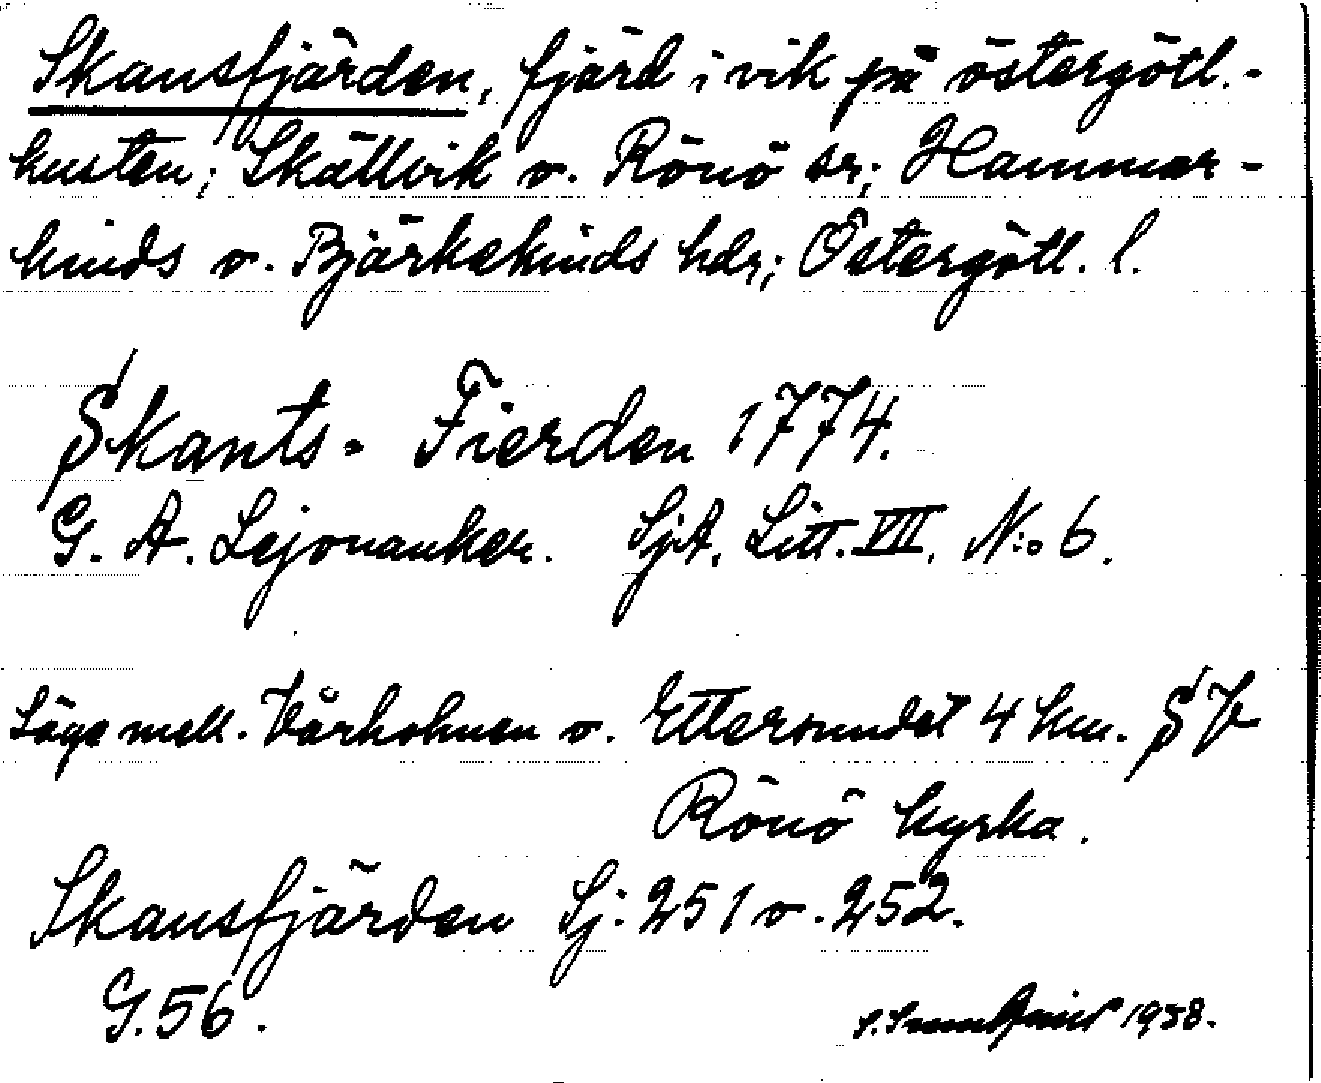 Skansfjärden, fjärd i vik på östergötl.-
kusten; Skällvik o. Rönö sr; Hammar-
kinds o. Björkekinds hdr; Östergötl. l.
Skants- Fierden 1774.
G. A. Lejonanker. SjA. Litt. VII. N:o 6.
Läge mell. Vårholmen o. Ettersundet 4 km. SV
Rönö kyrka.
Skansfjärden Sj. 251 o. 252.
G. 56.
1938.